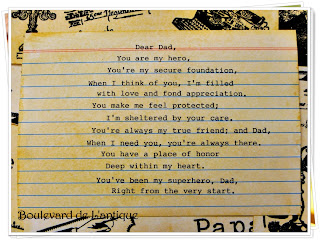 Dear Dad,
You are my hero,
You're my secure foundation,
When I think of you, I'm filled
with love and fond appreciation.
You make me feel protected;
I'm sheltered by your care.
You're always my true friend; and Dad,
When I need you, you're always there.
You have a place of honor
Deep within my heart.
You've been my superhero, Dad,
Right from the very start.
Boulevard de L'antique
Papa